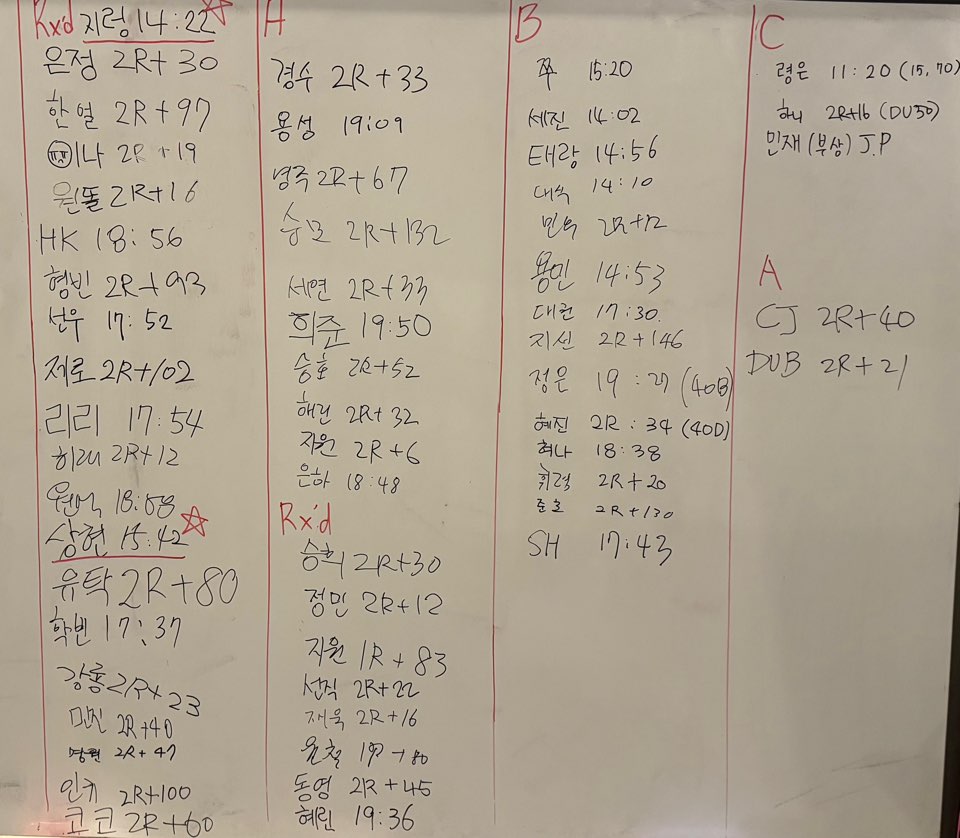 Rx'd 지렁 14:22
은정 2R+30
한열 2R+97
이나 2R+19
원똘 2R+16
HK 18:56
형빈 2R+93
선우 17:52
제로 2R+102
리리 17:54
히래 2R+12
원석 18:58
상현 15:42
유탁 2R+80
학빈 17:37
강룡 2R+23
민진 2R+40
2R+47
인키 2R+100
코코 2R+60
A
경수 2R+33
용성 19:09
명주 2R+67
승모 2R+132
세연 2R+33
희준 19:50
승호 2R+52
해린 2R+32
지원 2R+6
은하 18:48
Rx'd
승희 2R+30
정민 2R+12
지원 1R+83
선직 2R+22
재욱 2R+16
윤철 1R+80
동영 2R+45
혜린 19:36
B
쭈 15:20
세진 14:02
태랑 14:56
대숙 14:10
민욱 2R+12
용민 14:53
대권 17:30
지선 2R+146
정은 19:27 (40B)
혜진 2R:34 (40D)
혀나 18:38
휘력 2R+20
준호 2R+130
SH 17:43
C
령은 11:20 (15,70)
허니 2R+16 (DU50)
민재 (부상) J.P
A
CJ 2R+40
DUB 2R+21